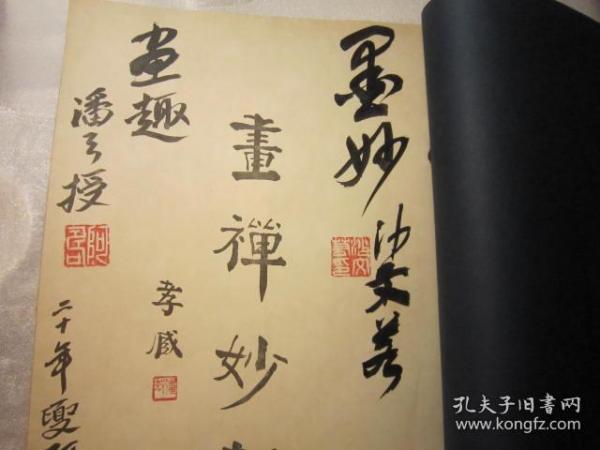 墨妙
沙文若
畫禪妙
孝臧
畫趣
潘天授
二十年夏
孔夫子旧书网
www.kongfz.com